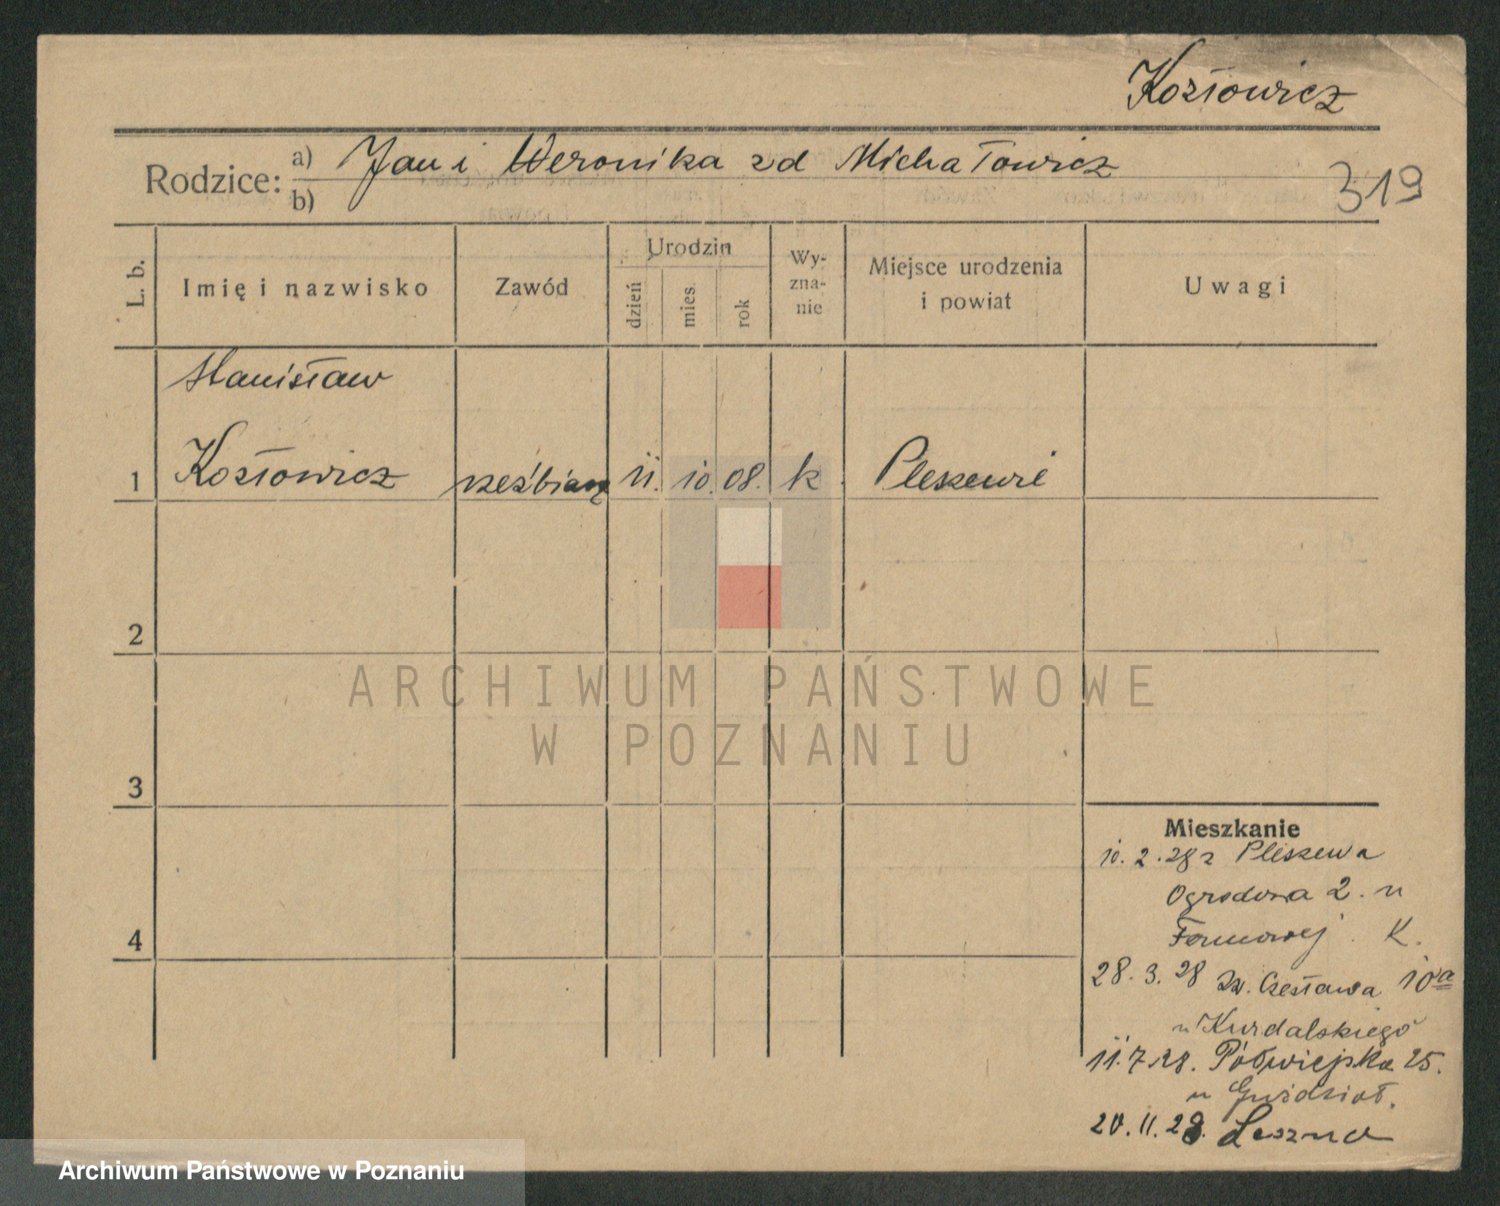 Kozłowicz
Rodzice: a) Jan i Weronika zd Michałowicz
b)
319
L. b.
Imię i nazwisko
Zawód
Urodzin
dzień
mies.
rok
Wy-
zna-
nie
Miejsce urodzenia
i powiat
Uwagi
Stanisław
1 Kozłowicz rzeźbiarz 11. 10. 08. k Pleszewie
2
3
4
Mieszkanie
10. 2. 28 z Pleszewa
Ogrodowa 2. u
K.
28. 3. 28 Św. Czesława 10a
u Kurdalskiego
11. 7. 28. Półwiejska 25.
u
20. 11. 28. Leszno
ARCHIWUM PAŃSTWOWE
W POZNANIU
Archiwum Państwowe w Poznaniu